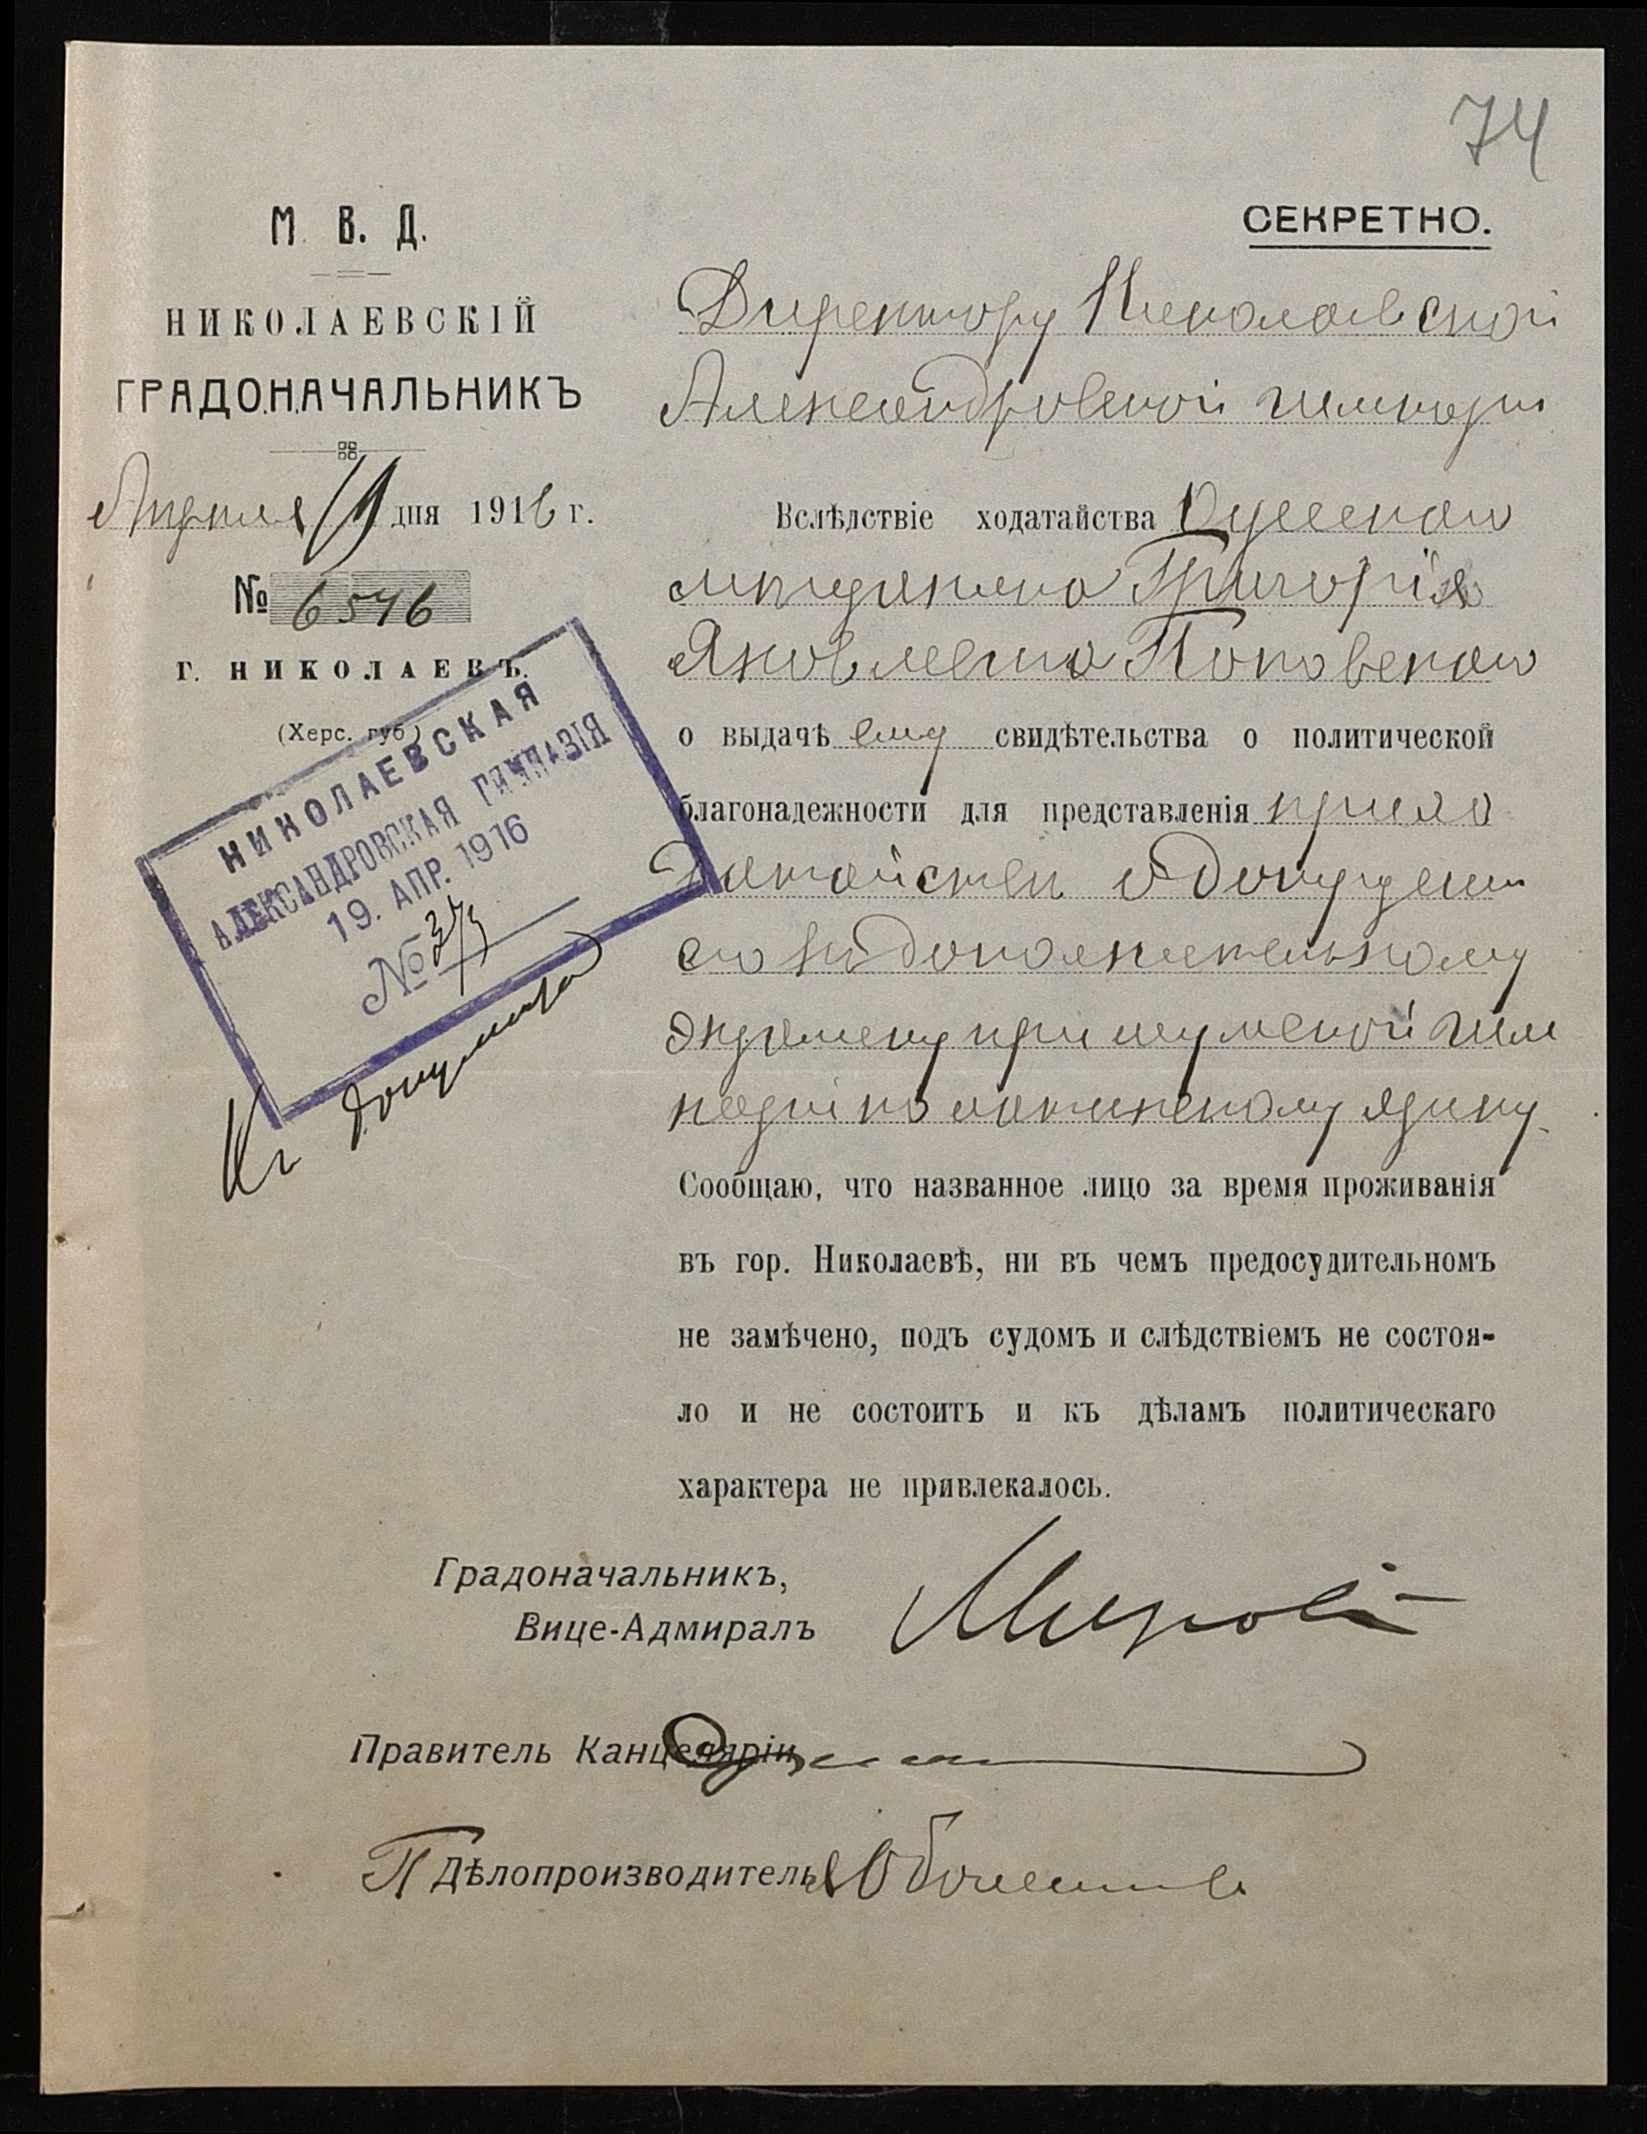 74
М. В. Д.
НИКОЛАЕВСКІЙ
ГРАДОНАЧАЛЬНИКЪ
Апрѣля 19 дня 1916 г.
№ 6546
г. НИКОЛАЕВЪ.
(Херс. губ.)
НИКОЛАЕВСКАЯ
АЛЕКСАНДРОВСКАЯ ГИМНАЗІЯ
19. АПР. 1916
№
Къ
СЕКРЕТНО.
Директору Николаевской
Александровской гимназіи
Вслѣдствіе ходатайства
мѣщанина Григорія
Яковлева Поповскаго
о выдачѣ ему свидѣтельства о политической
благонадежности для представленія при хо
датайствѣ о допущеніи
его къ дополнительному
экзамену при мужской гим
назіи по латинскому языку
Сообщаю, что названное лицо за время проживанія
въ гор. Николаевѣ, ни въ чемъ предосудительномъ
не замѣчено, подъ судомъ и слѣдствіемъ не состоя-
ло и не состоитъ и къ дѣламъ политическаго
характера не привлекалось.
Градоначальникъ,
Вице-Адмиралъ
Правитель Канцеляріи
П Дѣлопроизводителя